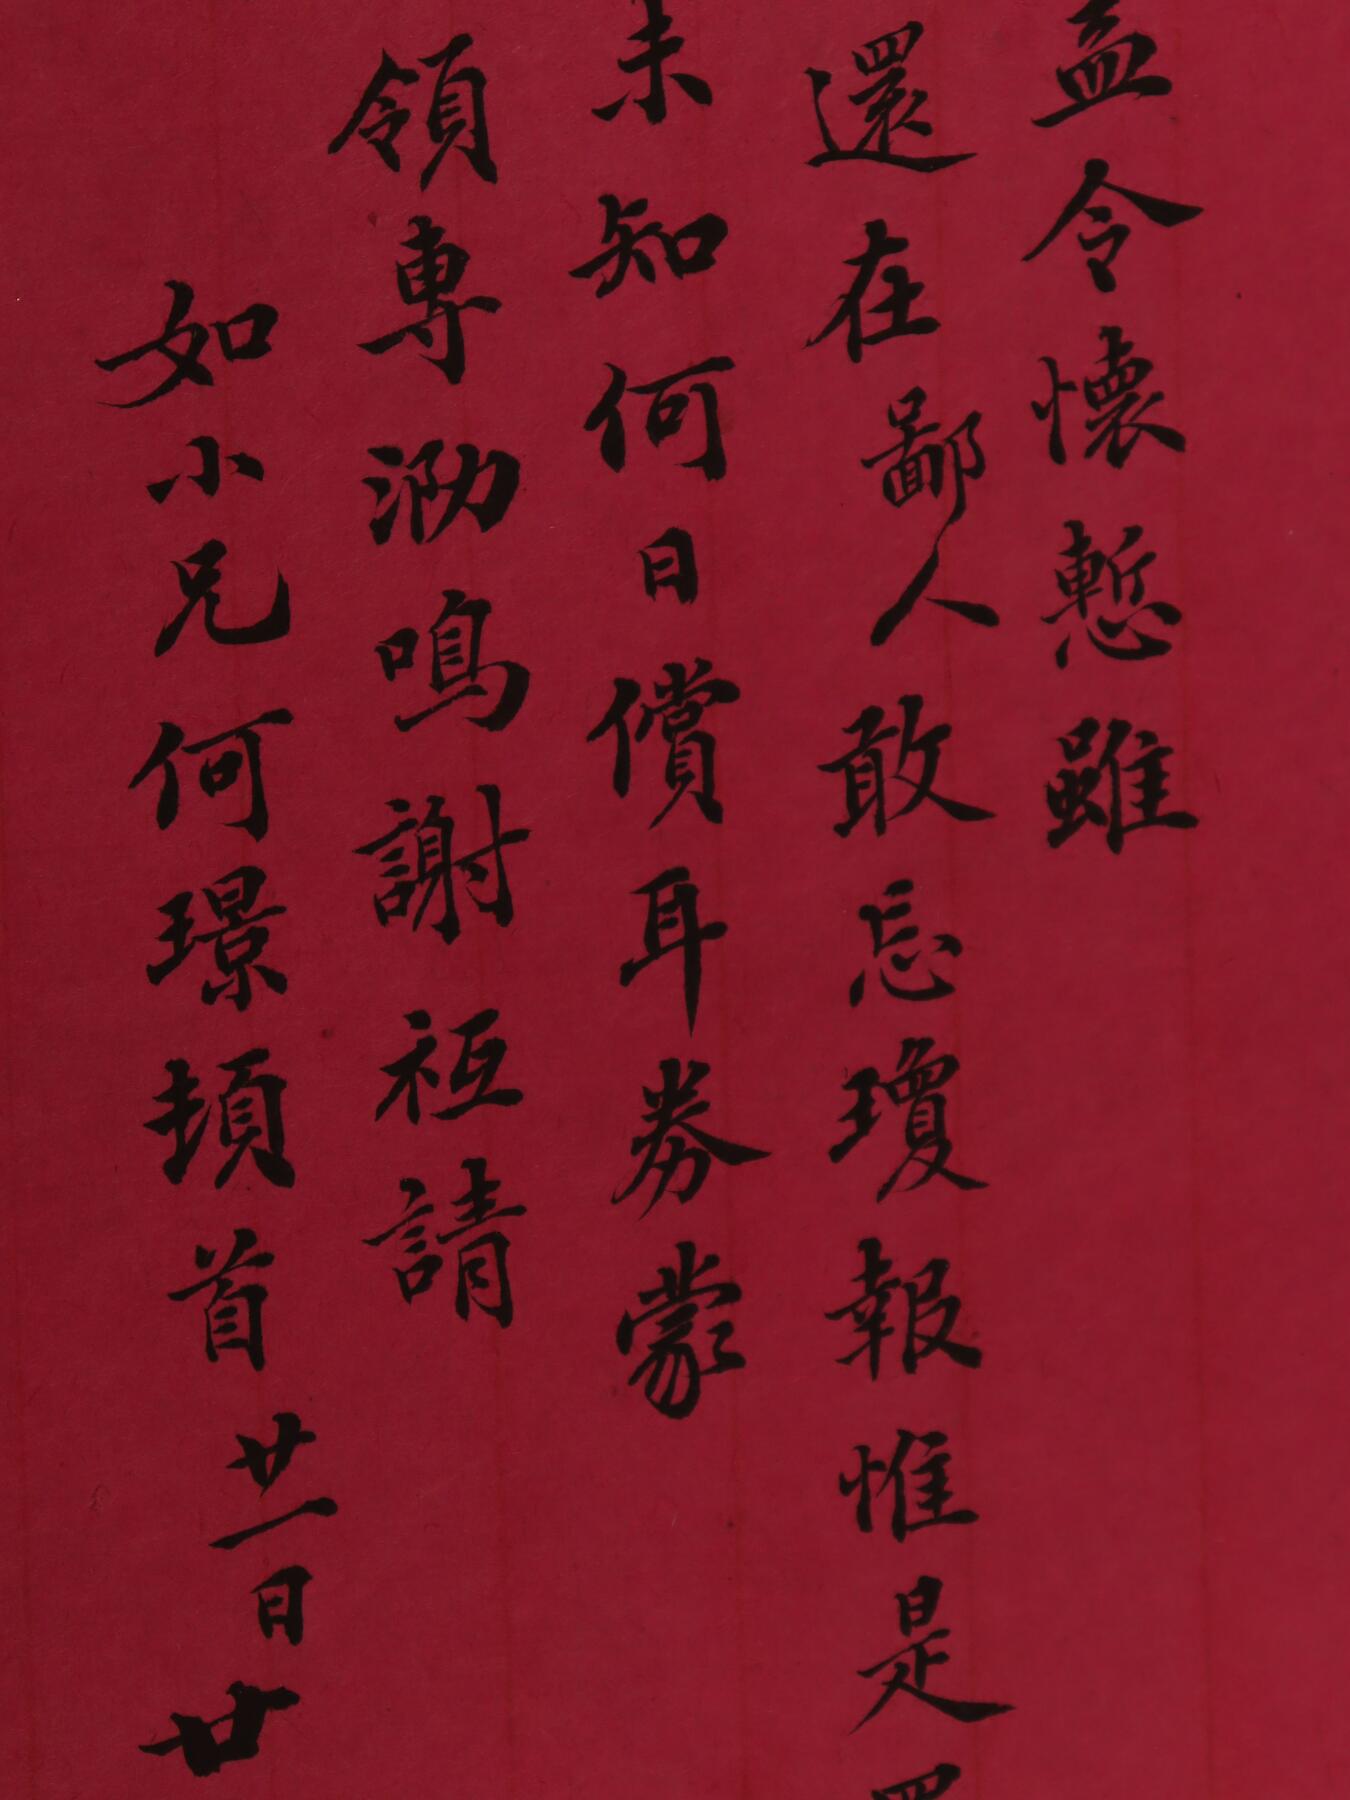 益令懷慙雖
還在鄙人敢忘瓊報惟是
未知何日償耳券蒙
領專泐鳴謝祗請
如小兄何璟頓首廿一日廿